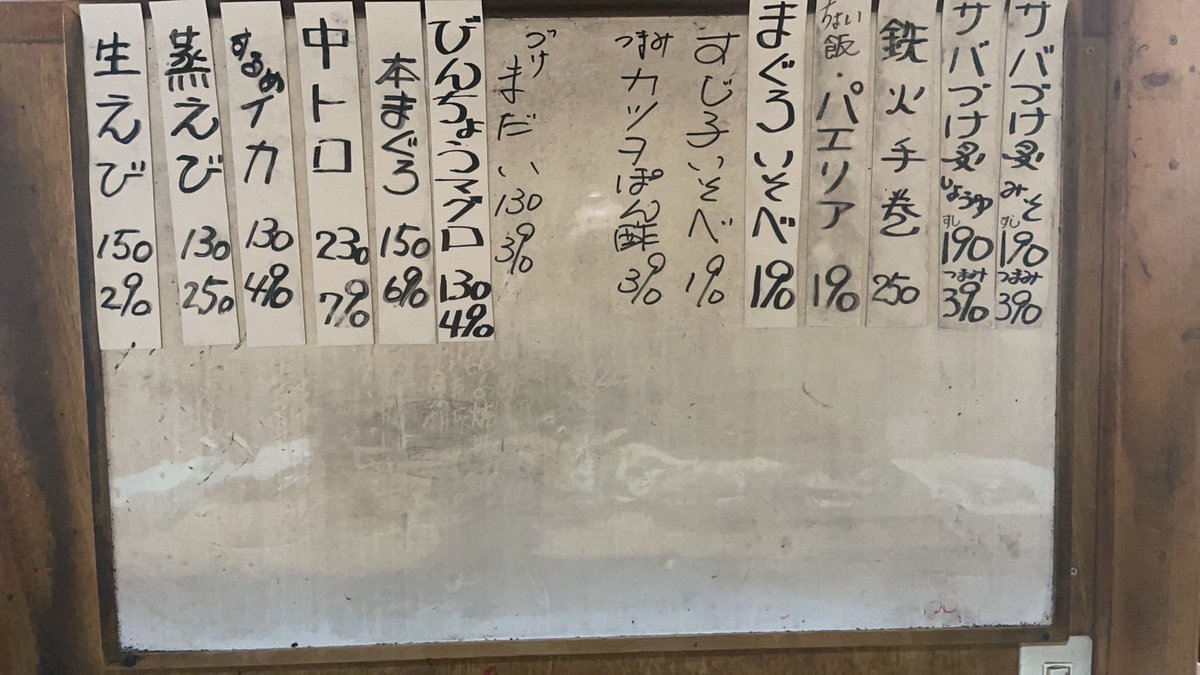 サバづけ炙みそ すし190 つまみ390
サバづけ炙しょうゆ すし190 つまみ390
鉄火手巻 250
ちょい飯・パエリア 190
まぐろいそべ 190
すじ子いそべ 190
つまみカツヲぽん酢 390
づけまだい 130 390
びんちょうマグロ 130 490
本まぐろ 150 690
中トロ 230 790
するめイカ 130 490
蒸えび 130 250
生えび 150 290